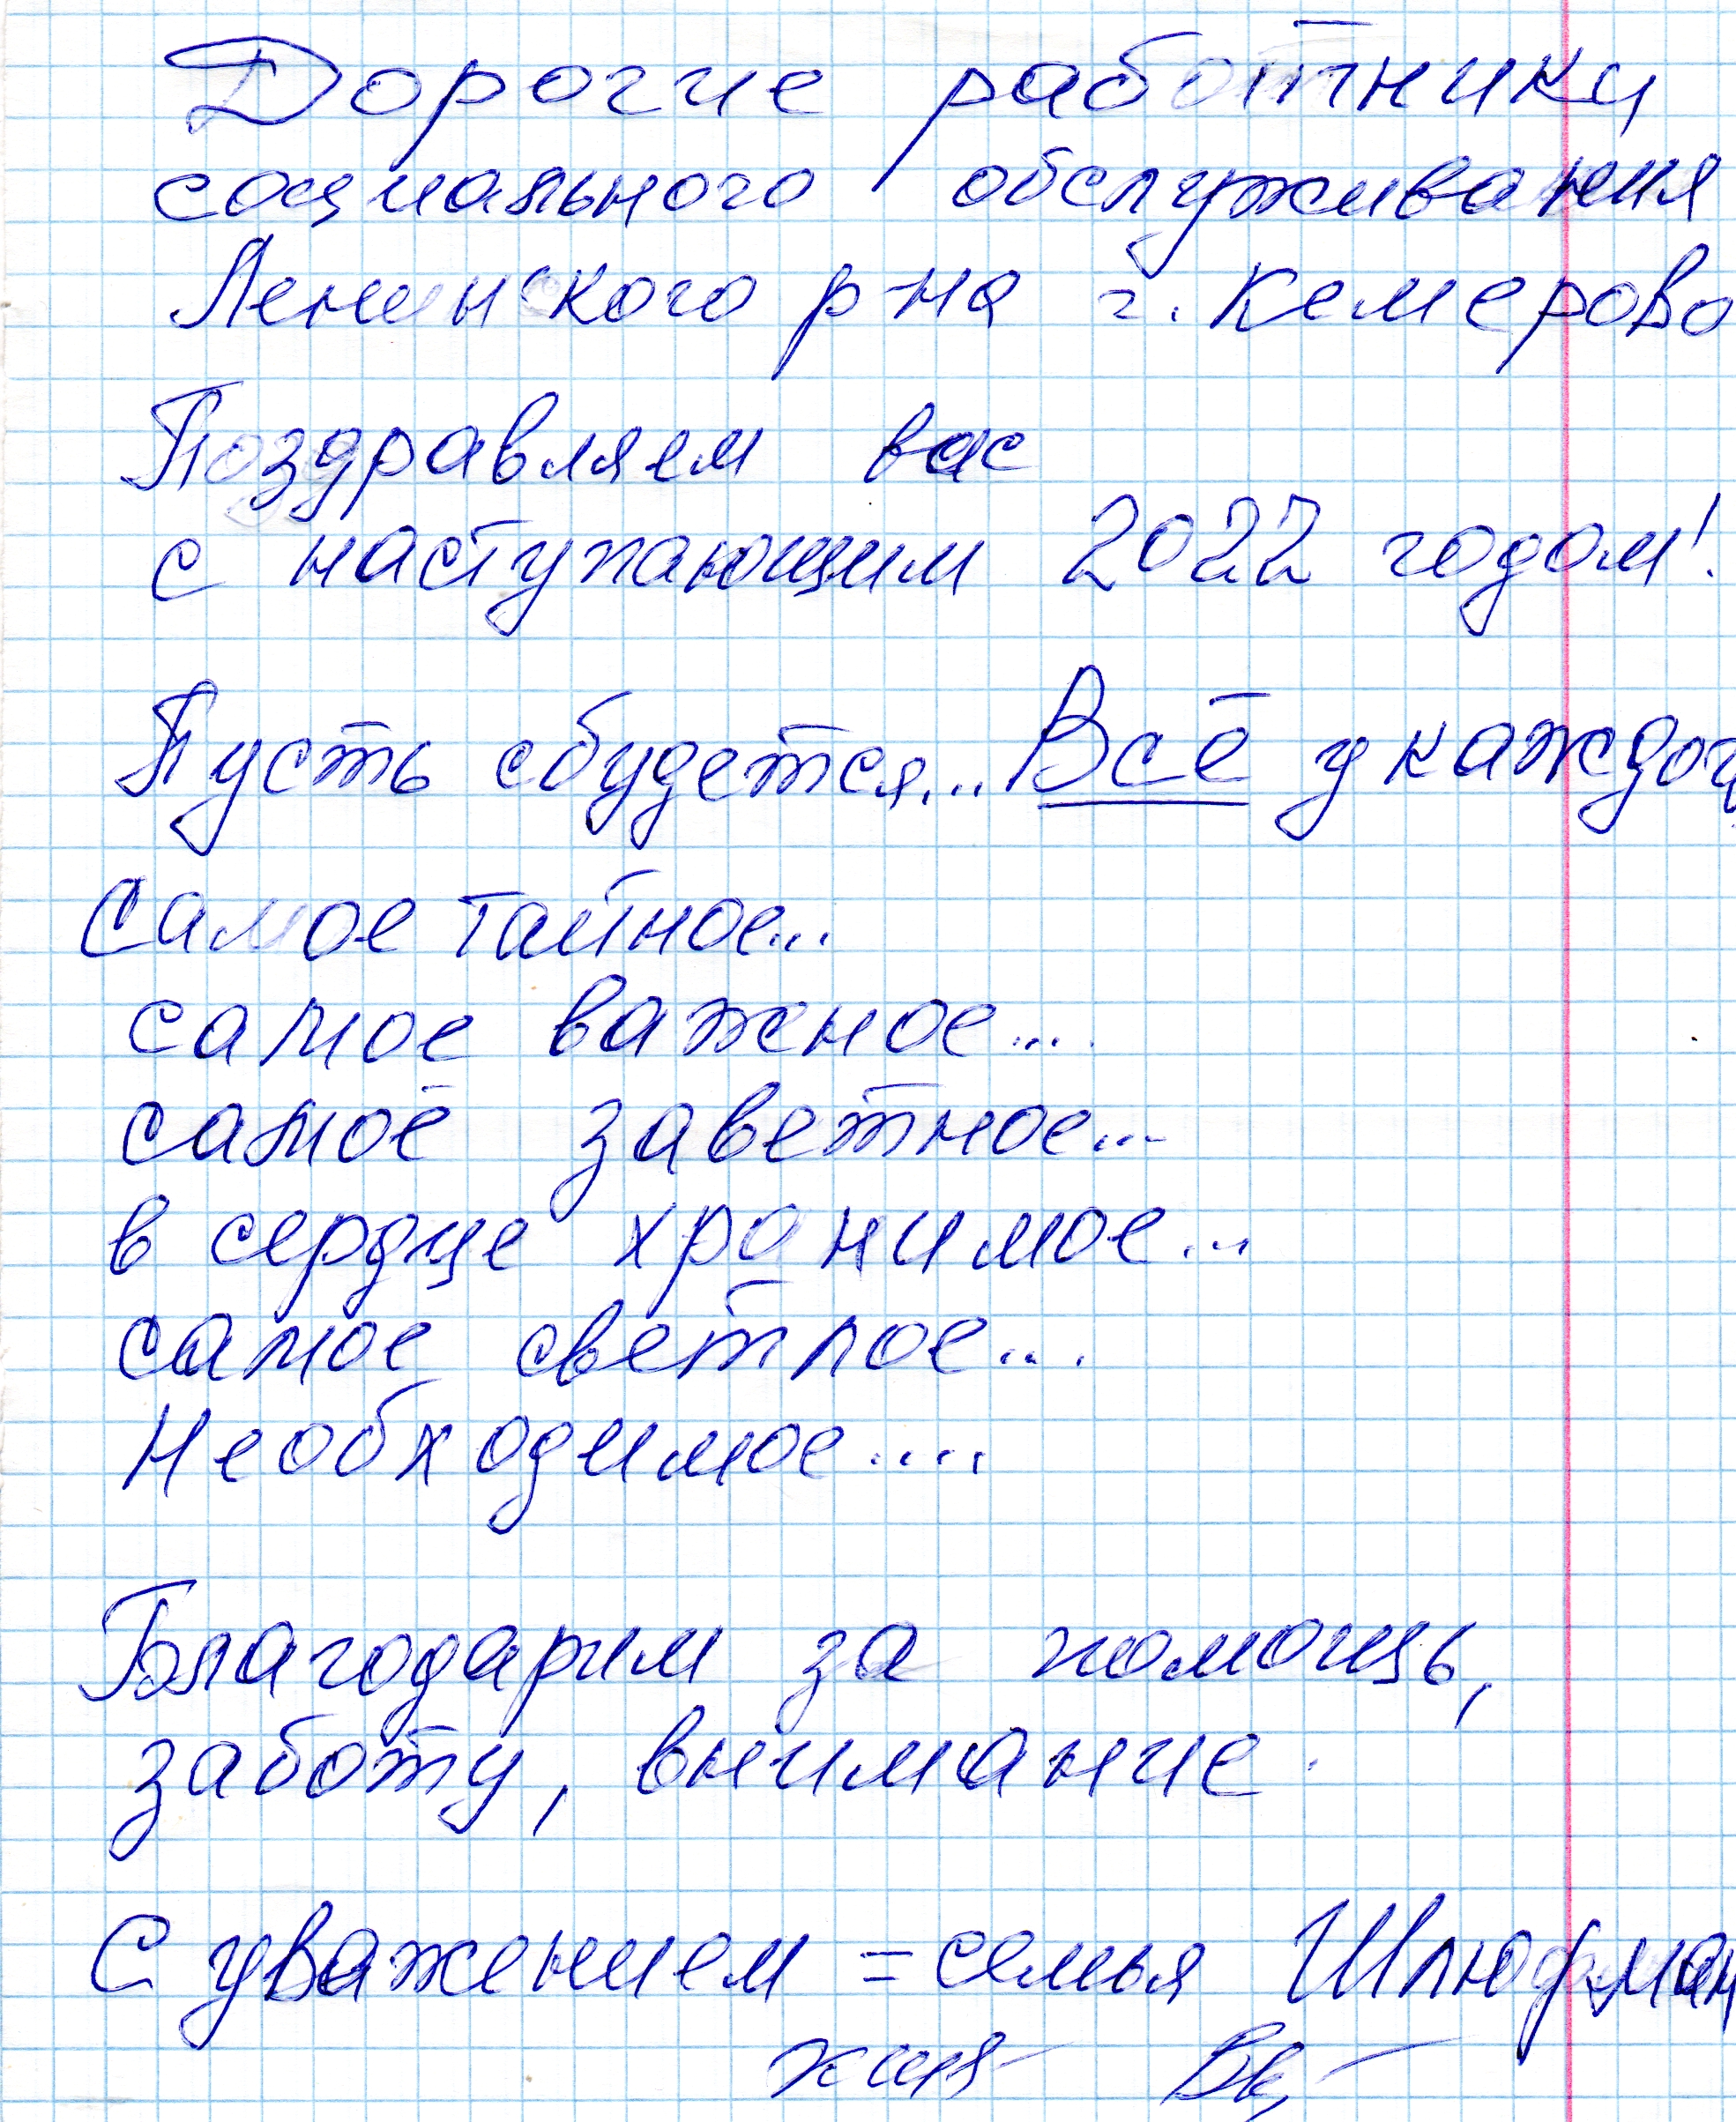 Дорогие работники
социального обслуживания
Ленинского р-на г. Кемерово
Поздравляем вас
с наступающим 2022 годом!
Пусть сбудется... Всё у каждог
Самое тайное...
самое важное...
самое заветное...
в сердце хранимое...
самое светлое...
Необходимое....
Благодарим за помощь,
заботу, внимание.
С уважением = семья